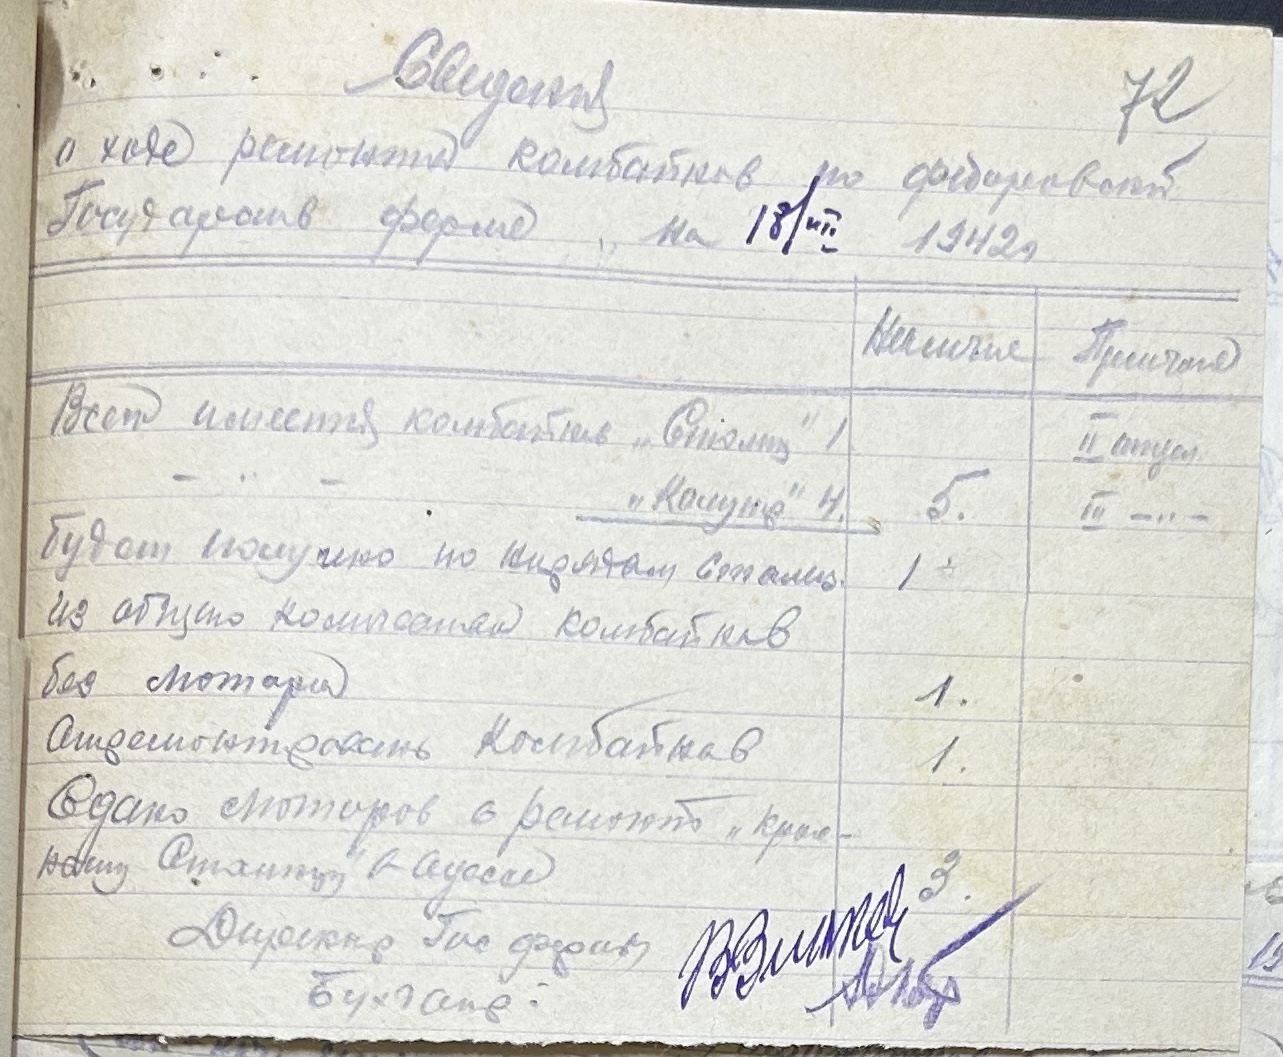 Сведения
72
о ходе ремонта комбайнов по федоровской
Государств ферме на 18/VII 1942г
Наличие Примечан
Всего имеется комбайнов „Сталиц" 1 II отдел.
— " — „Комунар" 4. 5. III —"—
будет получено по нарядам Сталин. 1 
из общего количества комбайнов
без мотора 1.
Отремонтировань комбайнов 1.
Сдано моторов в ремонт „крас-
ному" в Одессе 3.
Директор Гос фермы
Бухгалт: